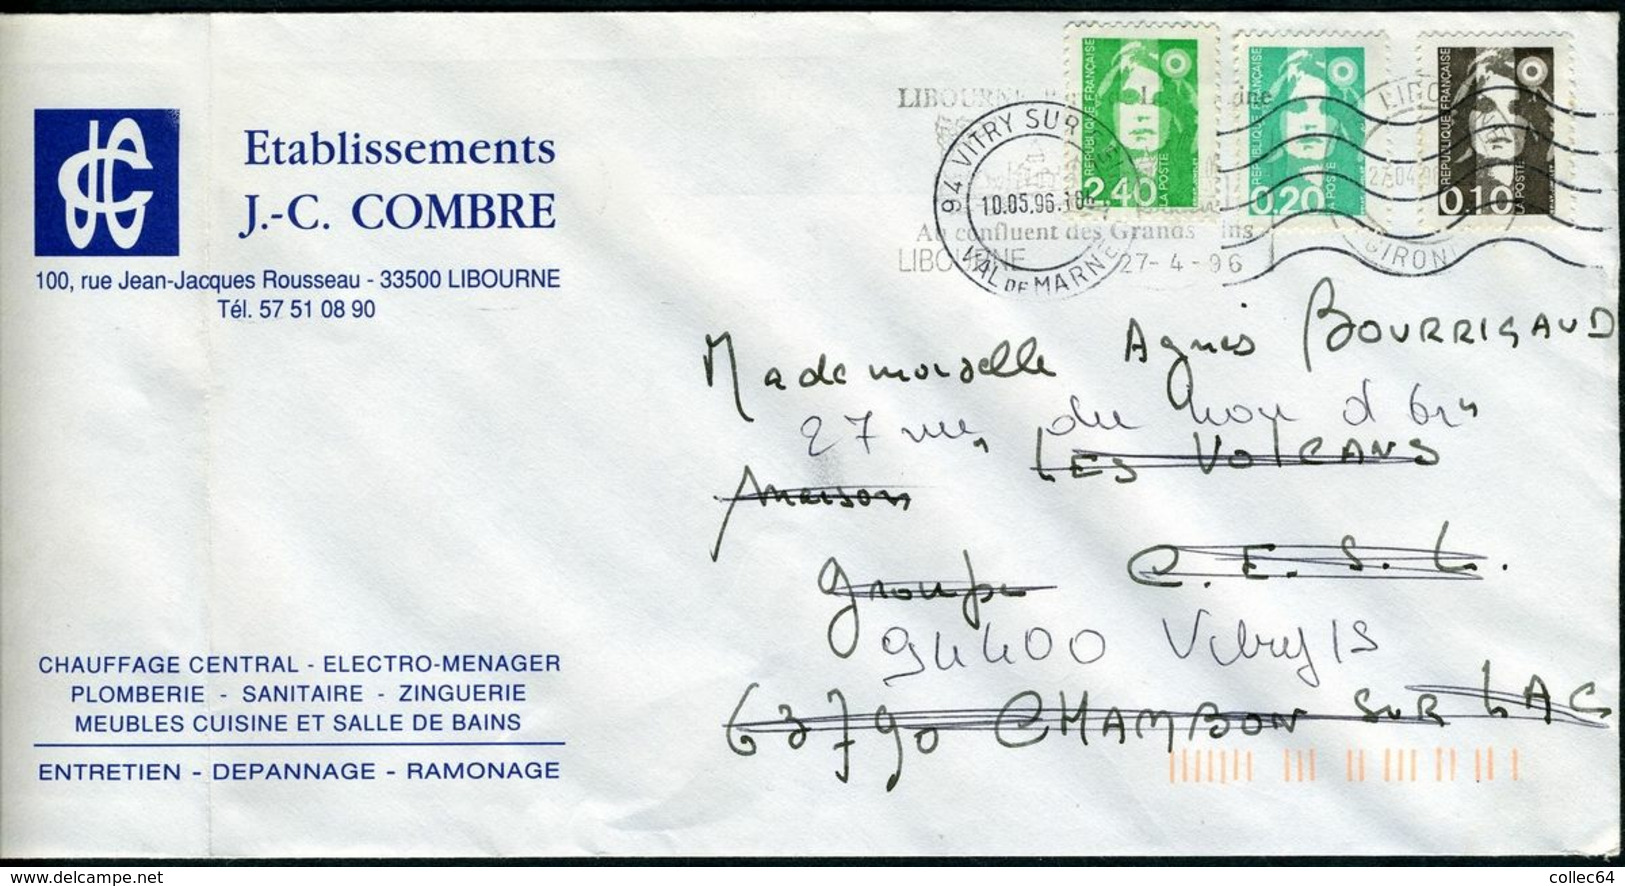 Etablissements
J.-C. COMBRE
100, rue Jean-Jacques Rousseau - 33500 LIBOURNE
Tél. 57 51 08 90
REPUBLIQUE FRANÇAISE
LA POSTE
2,40
REPUBLIQUE FRANÇAISE
LA POSTE
0,20
REPUBLIQUE FRANÇAISE
LA POSTE
0,10
LIBOURNE
Au confluent des Grands
LIBOURNE
27-4-96
94 VITRY SUR
10.05.96
VAL DE MARNE
27-04-96
GIRONDE
Mademoiselle Agnès BOURRIGAUD
27 rue du
Maison LES VOLCANS
Groupe C.E.S.L.
94400 Vitry/S
63790 CHAMBON SUR LAC
CHAUFFAGE CENTRAL - ELECTRO-MENAGER
PLOMBERIE - SANITAIRE - ZINGUERIE
MEUBLES CUISINE ET SALLE DE BAINS
ENTRETIEN - DEPANNAGE - RAMONAGE
www.delcampe.net
collec64